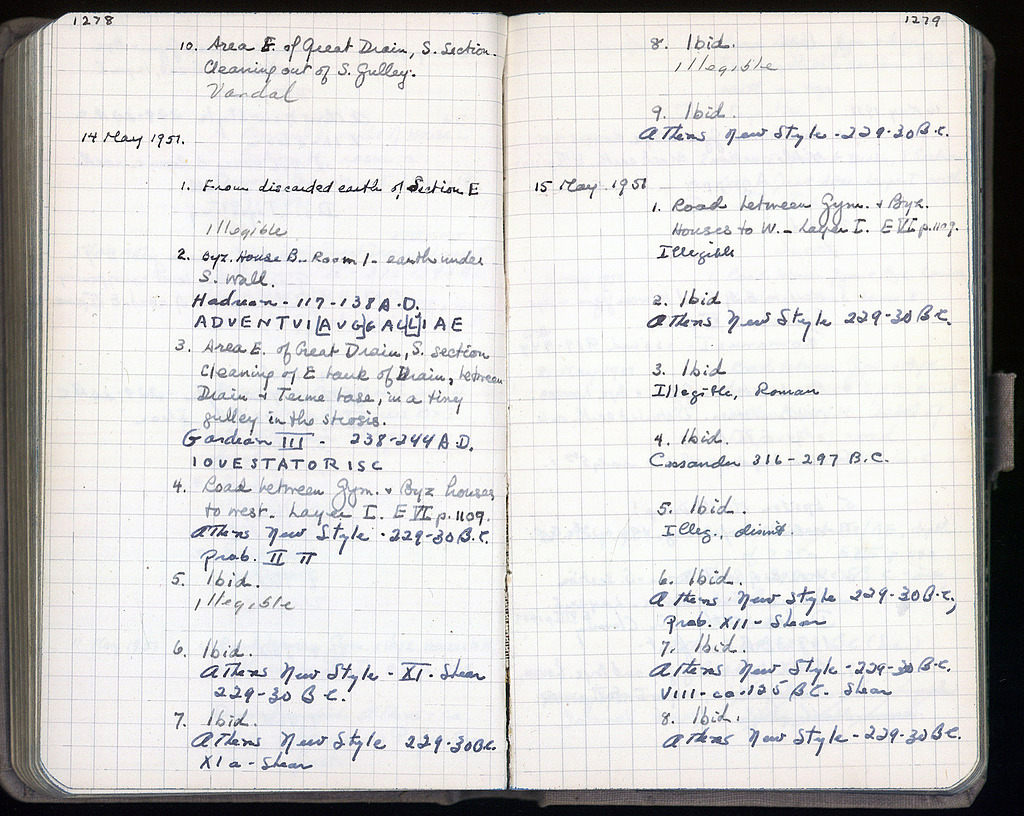 1278
10. Area E. of Great Drain, S. Section.
Cleaning out of S. Gulley.
Vandal
14 May 1951.
1. From discarded earth of Section E
illegible
2. Byz. House B. Room 1 - earth under
S. wall.
Hadrian - 117-138 A.D.
ADVENTVI[AVG]GALLIAE
3. Area E. of Great Drain, S. section
Cleaning of E bank of Drain, between
Drain + Terme base, in a tiny
gulley in the strosis.
Gordian III - 238-244 A.D.
IOVESTATORISC
4. Road between Gym. + Byz houses
to west. Layer I. E VI p. 1109.
Athens New Style - 229-30 B.C.
Prob. II π
5. Ibid.
illegible
6. Ibid.
Athens New Style - XI - Shear
229-30 B.C.
7. Ibid.
Athens New Style 229-30 B.C.
XI a - Shear
1279
8. Ibid.
illegible
9. Ibid.
Athens New Style - 229-30 B.C.
15 May 1951
1. Road between Gym. + Byz.
Houses to W. - Layer I. E VI p. 1109.
Illegible
2. Ibid
Athens New Style 229-30 B.C.
3. Ibid
Illegible, Roman
4. Ibid.
Cassander 316-297 B.C.
5. Ibid.
Illeg., disint.
6. Ibid.
Athens New Style 229-30 B.C.,
prob. XII - Shear
7. Ibid.
Athens New Style - 229-30 B.C.
VIII - ca. 125 B.C. Shear
8. Ibid.
Athens New Style - 229-30 B.C.